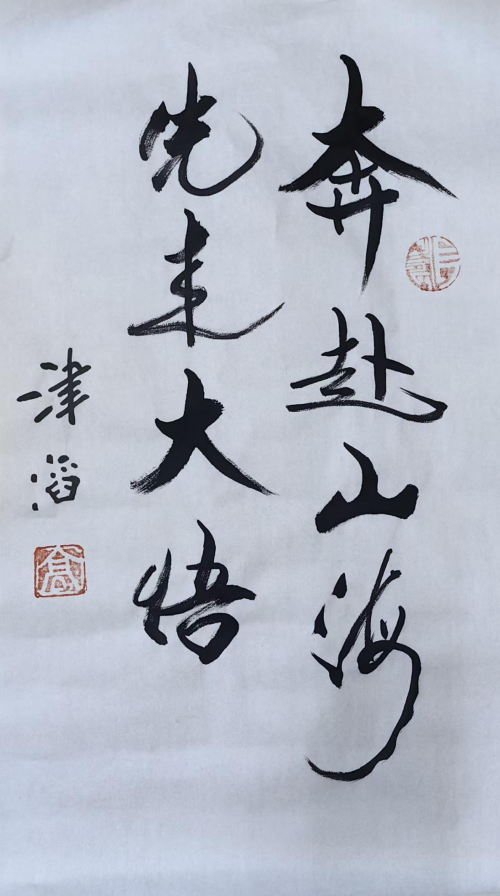 奔赴山海
先来大悟
津滔
高